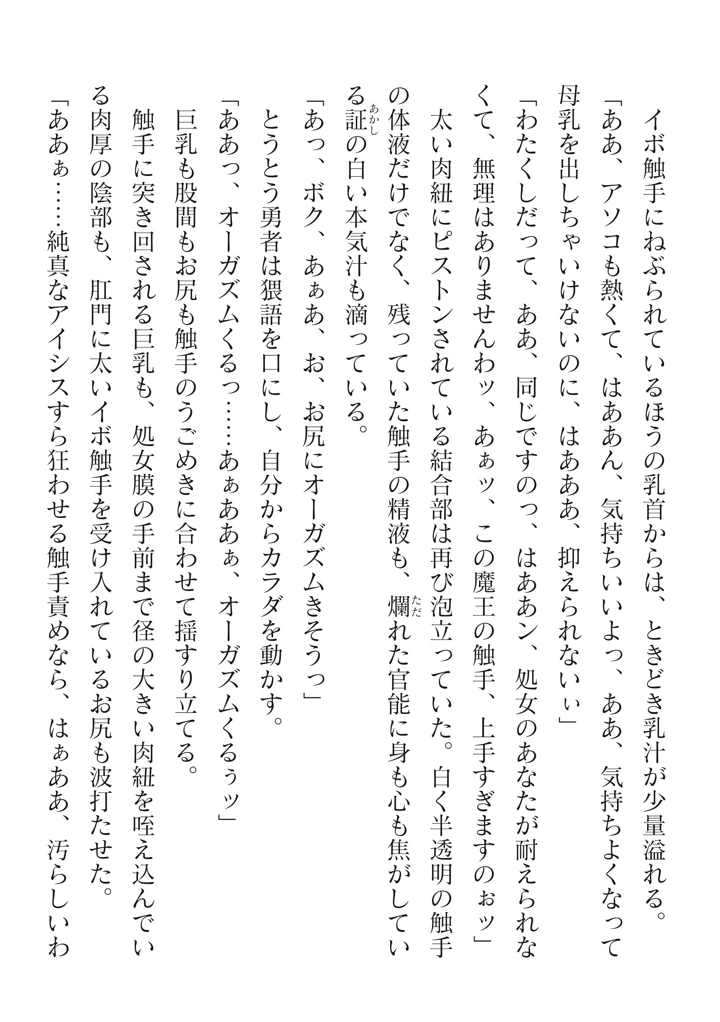 イボ触手にねぶられているほうの乳首からは、ときどき乳汁が少量溢れる。
「ああ、アソコも熱くて、はああん、気持ちいいよっ、ああ、気持ちよくなって
母乳を出しちゃいけないのに、はあああ、抑えられないぃ」
「わたくしだって、ああ、同じですのっ、はああン、処女のあなたが耐えられな
くて、無理はありませんわッ、あぁッ、この魔王の触手、上手すぎますのぉッ」
太い肉紐にピストンされている結合部は再び泡立っていた。白く半透明の触手
の体液だけでなく、残っていた触手の精液も、爛ただれた官能に身も心も焦がしてい
る証あかしの白い本気汁も滴っている。
「あっ、ボク、あぁあ、お、お尻にオーガズムきそうっ」
とうとう勇者は猥語を口にし、自分からカラダを動かす。
「ああっ、オーガズムくるっ……あぁああぁ、オーガズムくるぅッ」
巨乳も股間もお尻も触手のうごめきに合わせて揺すり立てる。
触手に突き回される巨乳も、処女膜の手前まで径の大きい肉紐を咥え込んでい
る肉厚の陰部も、肛門に太いイボ触手を受け入れているお尻も波打たせた。
「ああぁ……純真なアイシスすら狂わせる触手責めなら、はぁああ、汚らしいわ